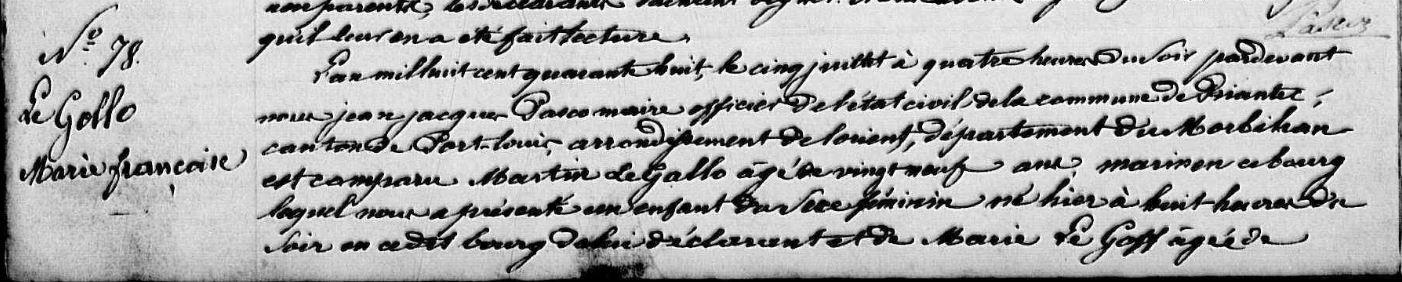 non parents, les déclarants
qu'il leur en a été fait lecture.
N.o 78.
Le Gallo
Marie françoise
L'an mil huit cent quarante huit, le cinq juillet à quatre heures du soir pardevant
nous jean jacques Pasco maire officier de l'état civil de la commune de Riantec,
canton de Port-louis, arrondissement de lorient, département du Morbihan
est comparu Martin Le Gallo âgé de vingt neuf ans, marin en ce bourg
lequel nous a présenté un enfant du Sexe féminin né hier à huit heures du
soir en ce dit bourg de lui déclarant et de Marie Le Goff âgée de